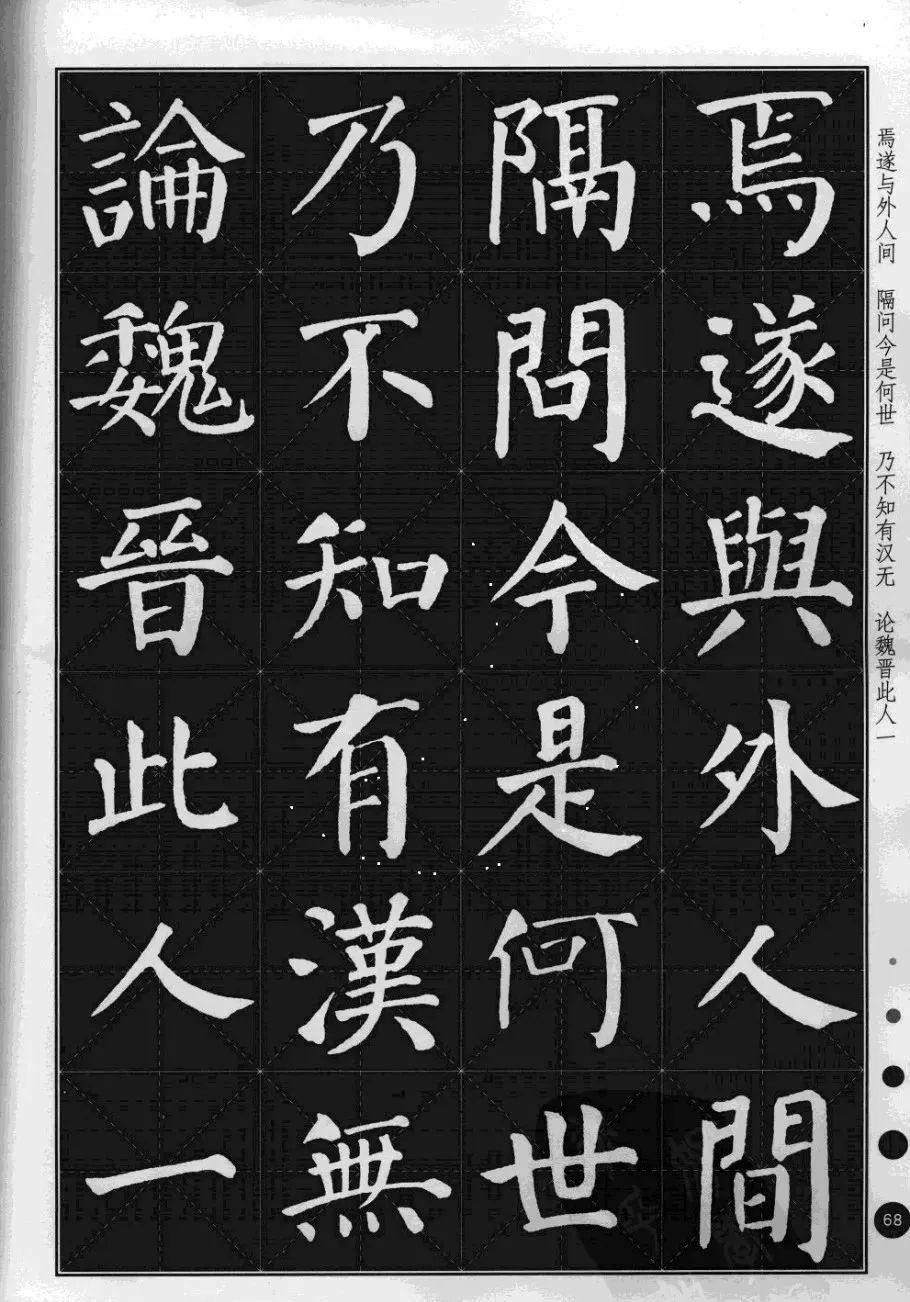 焉遂與外人間
隔問今是何世
乃不知有漢無
論魏晉此人一
焉遂与外人间 隔问今是何世 乃不知有汉无 论魏晋此人一
68